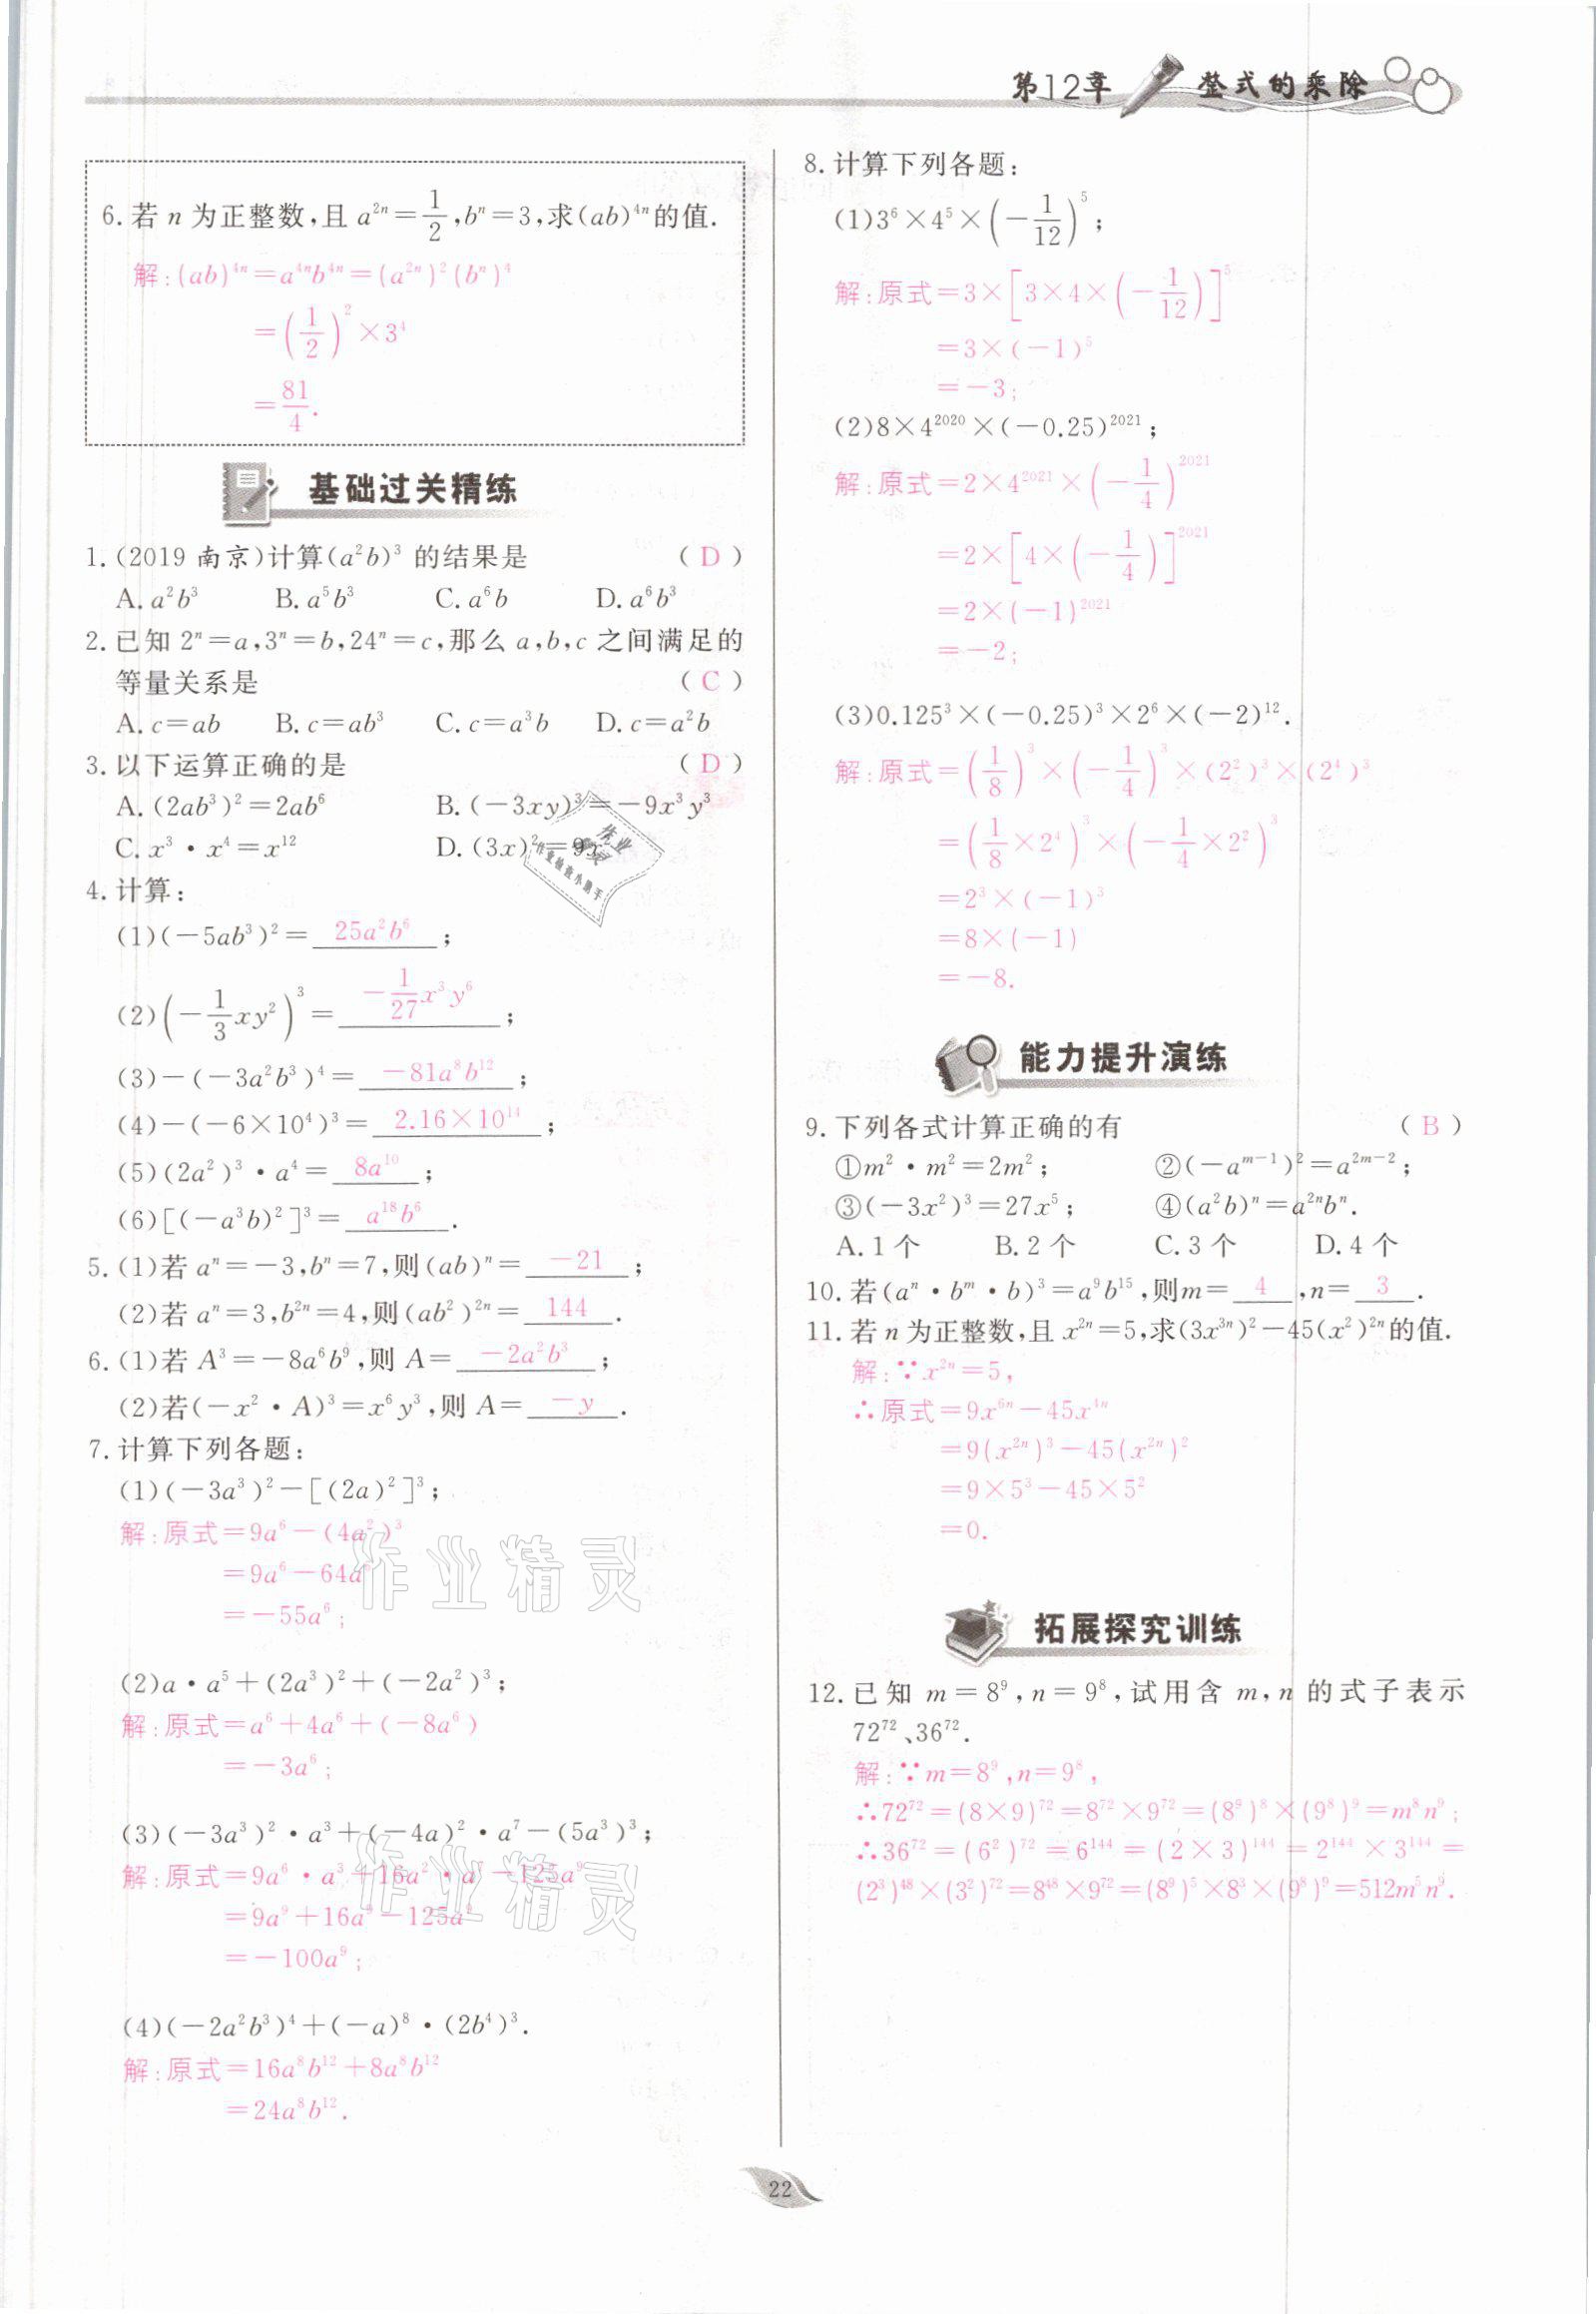 第12章 整式的乘除
6.若 n 为正整数,且 a²ⁿ=1/2,bⁿ=3,求(ab)⁴ⁿ的值.
解:(ab)⁴ⁿ=a⁴ⁿb⁴ⁿ=(a²ⁿ)²(bⁿ)⁴
=(1/2)²×3⁴
=81/4.
基础过关精练
1.(2019 南京)计算(a²b)³ 的结果是 (D)
A.a²b³ B.a⁵b³ C.a⁶b D.a⁶b³
2.已知 2ⁿ=a,3ⁿ=b,24ⁿ=c,那么 a,b,c 之间满足的
等量关系是 (C)
A.c=ab B.c=ab³ C.c=a³b D.c=a²b
3.以下运算正确的是 (D)
A.(2ab³)²=2ab⁶ B.(-3xy)³=-9x³y³
C.x³·x⁴=x¹² D.(3x)²=9x²
4.计算:
(1)(-5ab³)²=25a²b⁶;
(2)(-1/3xy²)³=-1/27x³y⁶;
(3)-(-3a²b³)⁴=-81a⁸b¹²;
(4)-(-6×10⁴)³=2.16×10¹⁴;
(5)(2a²)³·a⁴=8a¹⁰;
(6)[(-a³b)²]³=a¹⁸b⁶.
5.(1)若 aⁿ=-3,bⁿ=7,则(ab)ⁿ=-21;
(2)若 aⁿ=3,b²ⁿ=4,则(ab²)²ⁿ=144.
6.(1)若 A³=-8a⁶b⁹,则 A=-2a²b³;
(2)若(-x²·A)³=x⁶y³,则 A=-y.
7.计算下列各题:
(1)(-3a³)²-[(2a)²]³;
解:原式=9a⁶-(4a²)³
=9a⁶-64a⁶
=-55a⁶;
(2)a·a⁵+(2a³)²+(-2a²)³;
解:原式=a⁶+4a⁶+(-8a⁶)
=-3a⁶;
(3)(-3a³)²·a³+(-4a)²·a⁷-(5a³)³;
解:原式=9a⁶·a³+16a²·a⁷-125a⁹
=9a⁹+16a⁹-125a⁹
=-100a⁹;
(4)(-2a²b³)⁴+(-a)⁸·(2b⁴)³.
解:原式=16a⁸b¹²+8a⁸b¹²
=24a⁸b¹².
8.计算下列各题:
(1)3⁶×4⁵×(-1/12)⁵;
解:原式=3×[3×4×(-1/12)]⁵
=3×(-1)⁵
=-3;
(2)8×4²⁰²⁰×(-0.25)²⁰²¹;
解:原式=2×4²⁰²¹×(-1/4)²⁰²¹
=2×[4×(-1/4)]²⁰²¹
=2×(-1)²⁰²¹
=-2;
(3)0.125³×(-0.25)³×2⁶×(-2)¹².
解:原式=(1/8)³×(-1/4)³×(2²)³×(2⁴)³
=(1/8×2⁴)³×(-1/4×2²)³
=2³×(-1)³
=8×(-1)
=-8.
能力提升演练
9.下列各式计算正确的有 (B)
①m²·m²=2m²; ②(-aᵐ⁻¹)²=a²ᵐ⁻²;
③(-3x²)³=27x⁵; ④(a²b)ⁿ=a²ⁿbⁿ.
A.1 个 B.2 个 C.3 个 D.4 个
10.若(aⁿ·bᵐ·b)³=a⁹b¹⁵,则m=4,n=3.
11.若 n 为正整数,且 x²ⁿ=5,求(3x³ⁿ)²-45(x²)²ⁿ的值.
解:∵x²ⁿ=5,
∴原式=9x⁶ⁿ-45x⁴ⁿ
=9(x²ⁿ)³-45(x²ⁿ)²
=9×5³-45×5²
=0.
拓展探究训练
12.已知 m=8⁹,n=9⁸,试用含 m,n 的式子表示
72⁷²、36⁷².
解:∵m=8⁹,n=9⁸,
∴72⁷²=(8×9)⁷²=8⁷²×9⁷²=(8⁹)⁸×(9⁸)⁹=m⁸n⁹;
∴36⁷²=(6²)⁷²=6¹⁴⁴=(2×3)¹⁴⁴=2¹⁴⁴×3¹⁴⁴=
(2³)⁴⁸×(3²)⁷²=8⁴⁸×9⁷²=(8⁹)⁵×8³×(9⁸)⁹=512m⁵n⁹.
作业精灵
作业检查小助手
作业精灵
作业精灵
22